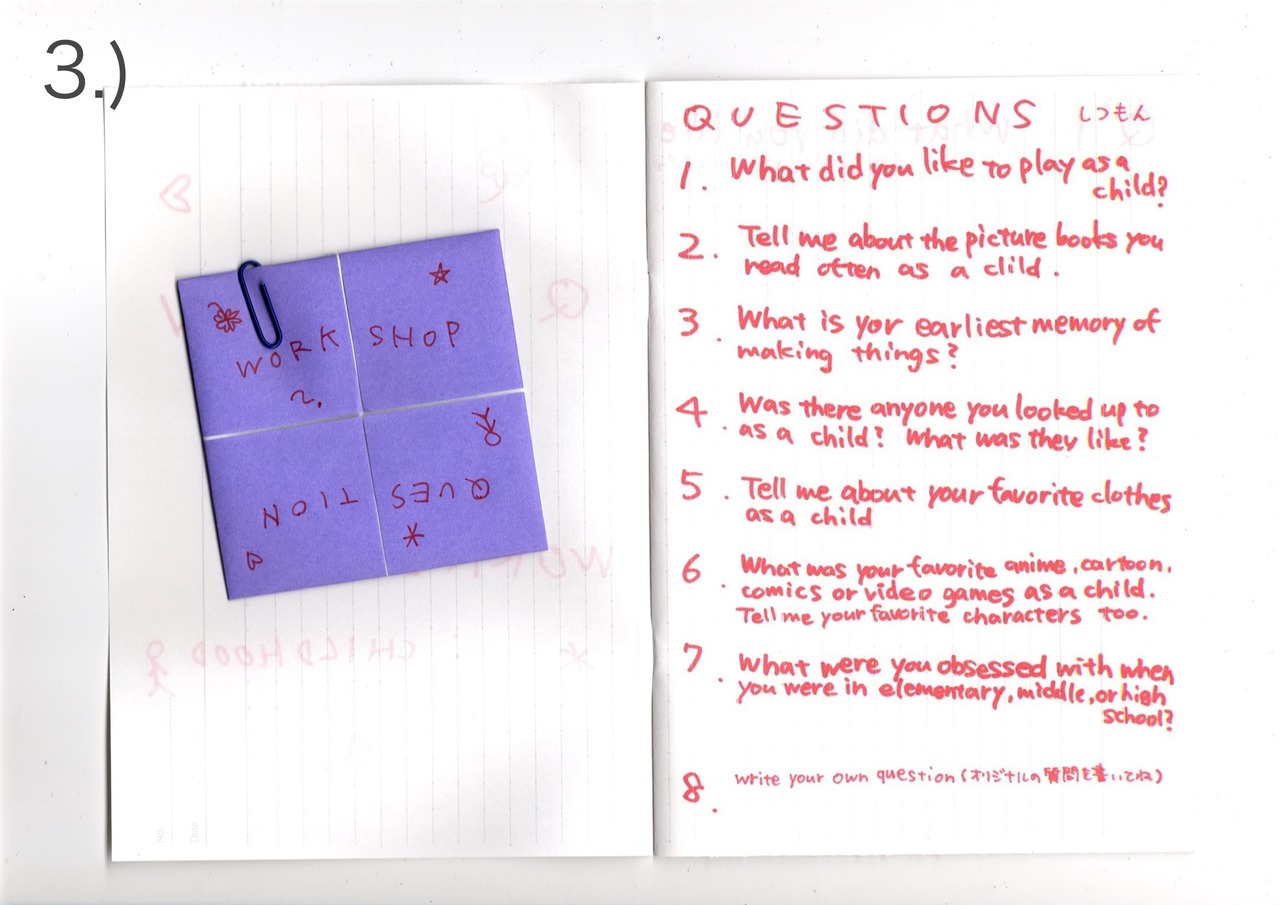 3.)
WORK SHOP
2.
QUES
TION
QUESTIONS しつもん
1. What did you like to play as a
child?
2. Tell me about the picture books you
read often as a clild.
3. What is yor earliest memory of
making things?
4. Was there anyone you looked up to
as a child? What was they like?
5. Tell me about your favorite clothes
as a child
6. What was your favorite anime, cartoon,
comics or video games as a child.
Tell me your favorite characters too.
7. What were you obsessed with when
you were in elementary, middle, or high
school?
8. write your own question (オリジナルの質問を書いてね)
No.
Date
CHILDHOOD